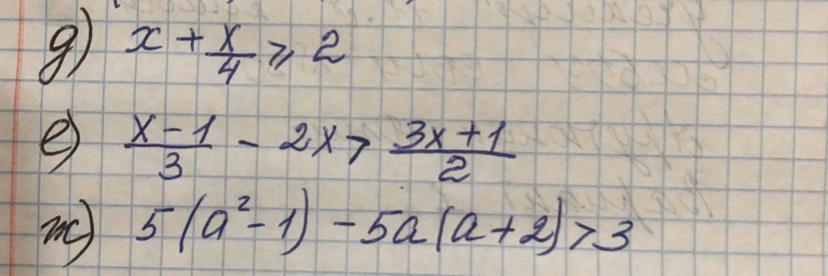 д) x + x/4 ⩾ 2
е) (x - 1)/3 - 2x > (3x + 1)/2
ж) 5(a² - 1) - 5a(a + 2) > 3